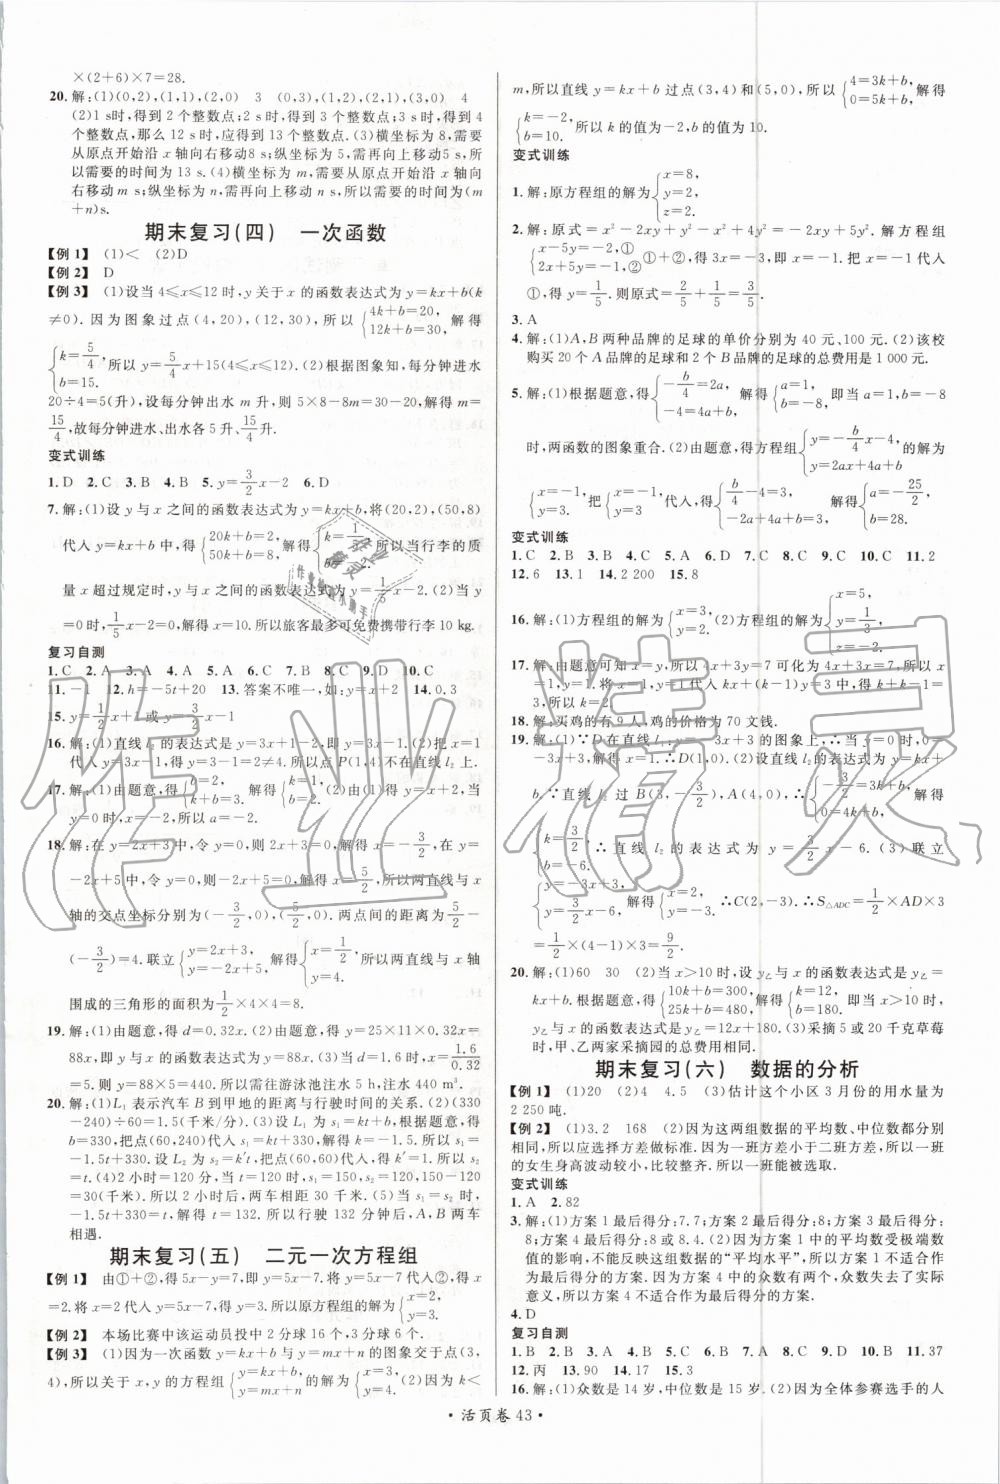 ×(2+6)×7=28.
20. 解:(1)(0,2),(1,1),(2,0) 3 (0,3),(1,2),(2,1),(3,0) 4
(2)1 s时,得到 2 个整数点;2 s时,得到 3 个整数点;3 s时,得到 4
个整数点,那么 12 s时,应得到 13 个整数点.(3)横坐标为 8,需要
从原点开始沿 x 轴向右移动8 s;纵坐标为 5,需再向上移动5 s,所
以需要的时间为 13 s.(4)横坐标为 m,需要从原点开始沿 x 轴向
右移动 m s;纵坐标为 n,需再向上移动 n s,所以需要的时间为(m
+n)s.
期末复习(四) 一次函数
【例 1】 (1)< (2)D
【例 2】 D
【例 3】 (1)设当 4≤x≤12 时,y 关于 x 的函数表达式为 y=kx+b(k
≠0). 因为图象过点(4,20),(12,30),所以{4k+b=20, 12k+b=30. 解得
{k=5/4, b=15. 所以 y=5/4x+15(4≤x≤12).(2)根据图象知,每分钟进水
20÷4=5(升),设每分钟出水 m 升,则 5×8-8m=30-20,解得 m=
15/4,故每分钟进水、出水各 5 升、15/4 升.
变式训练
1. D 2. C 3. B 4. B 5. y=3/2x-2 6. D
7. 解:(1)设 y 与 x 之间的函数表达式为 y=kx+b,将(20,2),(50,8)
代入 y=kx+b 中,得{20k+b=2, 50k+b=8. 解得{k=1/5, 所以当行李的质
量 x 超过规定时,y 与 x 之间的函数表达式为 y=1/5x-2.(2)当 y
=0时,1/5x-2=0,解得 x=10.所以旅客最多可免费携带行李 10 kg.
复习自测
1. C 2. A 3. A 4. A 5. A 6. C 7. B 8. C 9. D 10. C
11. -1 12. h=-5t+20 13. 答案不唯一,如:y=x+2 14. 0.3
16. 解:(1)直线 l₂ 的表达式是 y=3x+1-2,即 y=3x-1.(2)把 x=1
代入 y=3x-1,得 y=3-1=2≠4. 所以点 P(1,4)不在直线 l₂ 上.
17. 解:(1)根据题意,得{b=2, 2k+b=3. 解得{k=1/2, b=2. (2)由(1)得 y=1/2x+2,当 y
=1 时,1/2x+2=1.所以 a=-2.
18. 解:在 y=2x+3 中,令 y=0,则 2x+3=0,解得 x=-3/2,在 y=
-2x+5 中,令 y=0,则-2x+5=0,解得 x=5/2,所以两直线与 x
轴的交点坐标分别为(-3/2,0),(5/2,0). 两点间的距离为 5/2-
(-3/2)=4. 联立{y=2x+3, y=-2x+5. 解得{x=1/2, y=4. 所以两直线与 x 轴
围成的三角形的面积为1/2×4×4=8.
19. 解:(1)由题意,得 d=0.32x. (2)由题意,得 y=25×11×0.32x=
88x,即 y 与 x 的函数表达式为 y=88x. (3)由题意,得 x=1.6/0.32
=5. 则 y=88x=88×5=440. 则需往游泳池注水 440 m³.
20. 解:(1)L₁ 表示汽车 B 到甲地的距离与行驶时间的关系. (2)(330
-240)÷60=1.5(千米/分). (3)设 L₁ 为 s₁=kt+b,根据题意,得
b=330,把点(60,240)代入,得 k=-1.5,所以 s₁=
-1.5t+330. 设 L₂ 为 s₂=k′t,把点(60,60)代入,得 k′=1.所以 s₂
=t.(4)2 小时=120 分,当 t=120 时,s₁=150,s₂=120,150-120
=30(千米). 所以 2 小时后,两车相距 30 千米. (5)当 s₁=s₂ 时,
-1.5t+330=t,解得 t=132,所以行驶 132 分钟,A,B 两车
相遇.
期末复习(五) 二元一次方程组
【例 1】 由①+②,得 5x-y=7,即 y=5x-7,将 y=5x-7代入②,得 x
=2.将 x=2 代入 y=5x-7,得 y=3.所以原方程组的解为{x=2, y=3.
【例 2】 本场比赛中该运动员投中 2 分球 16 个,3 分球 6 个.
【例 3】 (1)因为一次函数 y=kx+b 与 y=mx+n 的图象交于点(3,
4),所以关于 x,y 的方程组{y=kx+b, y=mx+n 的解为{x=3, y=4. (2)因为 k<
m,所以直线 y=kx+b 过点(3,4)和(5,0),所以{4=3k+b, 0=5k+b. 解得
{k=-2, b=10. 所以 k 的值为-2,b 的值为 10.
变式训练
1. 解:原方程组的解为{x=8, y=2, z=2.
2. 解:原式=x²-2xy+y²-x²+4y²=5y²-2xy. 解方程组
{x-5y=-1,① 2x+5y=1,② ①+②,得 3x=0,即 x=0.把 x=0 代入
①,得 y=1/5.
3. A
4. 解:(1)A,B 两种品牌的足球的单价分别为 40 元、100 元. (2)该校
购买 20 个 A品牌的足球和 2 个 B品牌的足球的总费用是 1 000 元.
5. 解:(1)根据题意,得{-b/4=2a, -4=4a+b. 解得{a=1, b=-8, 即当 a=1,b=-8
时,两函数的图象重合. (2)由题意,得方程组{y=-b/4x-4, y=2ax+4a+b 的解为
{x=-1, y=3. 把{x=-1, y=3 代入,得{b/4-4=3, -2a+4a+b=3. 解得{a=-25/2, b=28.
变式训练
1. C 2. B 3. B 4. C 5. A 6. D 7. C 8. C 9. C 10. C 11. 2
12. 6 13. 1 14. 2 200 15. 8
17. 解:由题意可知 x=y,所以 4x+3y=7 可化为 4x+3x=7.所以 x
=1,y=1. 将 x=1,y=1代入 kx+(k-1)y=3 中,得 k+k-1=
3,所以 k=2.
18. 解:买鸡的有 9 人,鸡的价格为 70 文钱.
19. 解:(1)∵D在直线 l₁:y=-3x+3 的图象上,∴当 y=0 时,0=
-3x+3,解得 x=1. ∴D(1,0). (2)设直线 l₂的表达式为 y=kx+
b. ∵直线 l₂ 过 B(3,-3/2),A(4,0),∴{-3/2=3k+b, 0=4k+b. 解得
{k=3/2, b=-6. ∴直线 l₂ 的表达式为 y=3/2x-6. (3)联立
{y=-3x+3, y=3/2x-6, 解得{x=2, y=-3. ∴C(2,-3). ∴S△ADC=1/2×AD×3
=1/2×(4-1)×3=9/2.
20. 解:(1)60 30 (2)当 x>10 时,设 y乙与 x 的函数表达式是 y乙=
kx+b. 根据题意,得{10k+b=300, 25k+b=480, 解得{k=12, b=180, 即当 x>10 时,
y乙与 x 的函数表达式是 y乙=12x+180. (3)采摘 5 或 20 千克草莓
时,甲、乙两家采摘园的总费用相同.
期末复习(六) 数据的分析
【例 1】 (1)20 (2)4 4.5 (3)估计这个小区 3 月份的用水量为
2 250 吨.
【例 2】 (1)3.2 168 (2)因为这两组数据的平均数、中位数都分别
相同,所以应选择方差做标准. 因为一班方差小于二班方差,所以一班
的女生身高波动较小,比较整齐. 所以一班能被选取.
变式训练
1. A 2. 82
3. 解:(1)方案 1 最后得分:7.7;方案 2 最后得分:8;方案 3 最后得分:
8;方案 4 最后得分:8 或 8.4. (2)因为方案 1 中的平均数受极端数
值的影响,不能反映这组数据的“平均水平”,所以方案 1 不适合作
为最后得分的方案. 因为方案 4 中的众数有两个,众数失去了实际
意义,所以方案 4 不适合作为最后得分的方案.
4. D
复习自测
1. B 2. B 3. B 4. D 5. D 6. A 7. C 8. D 9. D 10. B 11. 37
12. 丙 13. 90 14. 17 15. 3
16. 解:(1)众数是 14 岁,中位数是 15 岁. (2)因为全体参赛选手的人
· 活页卷 43 ·
作业精灵